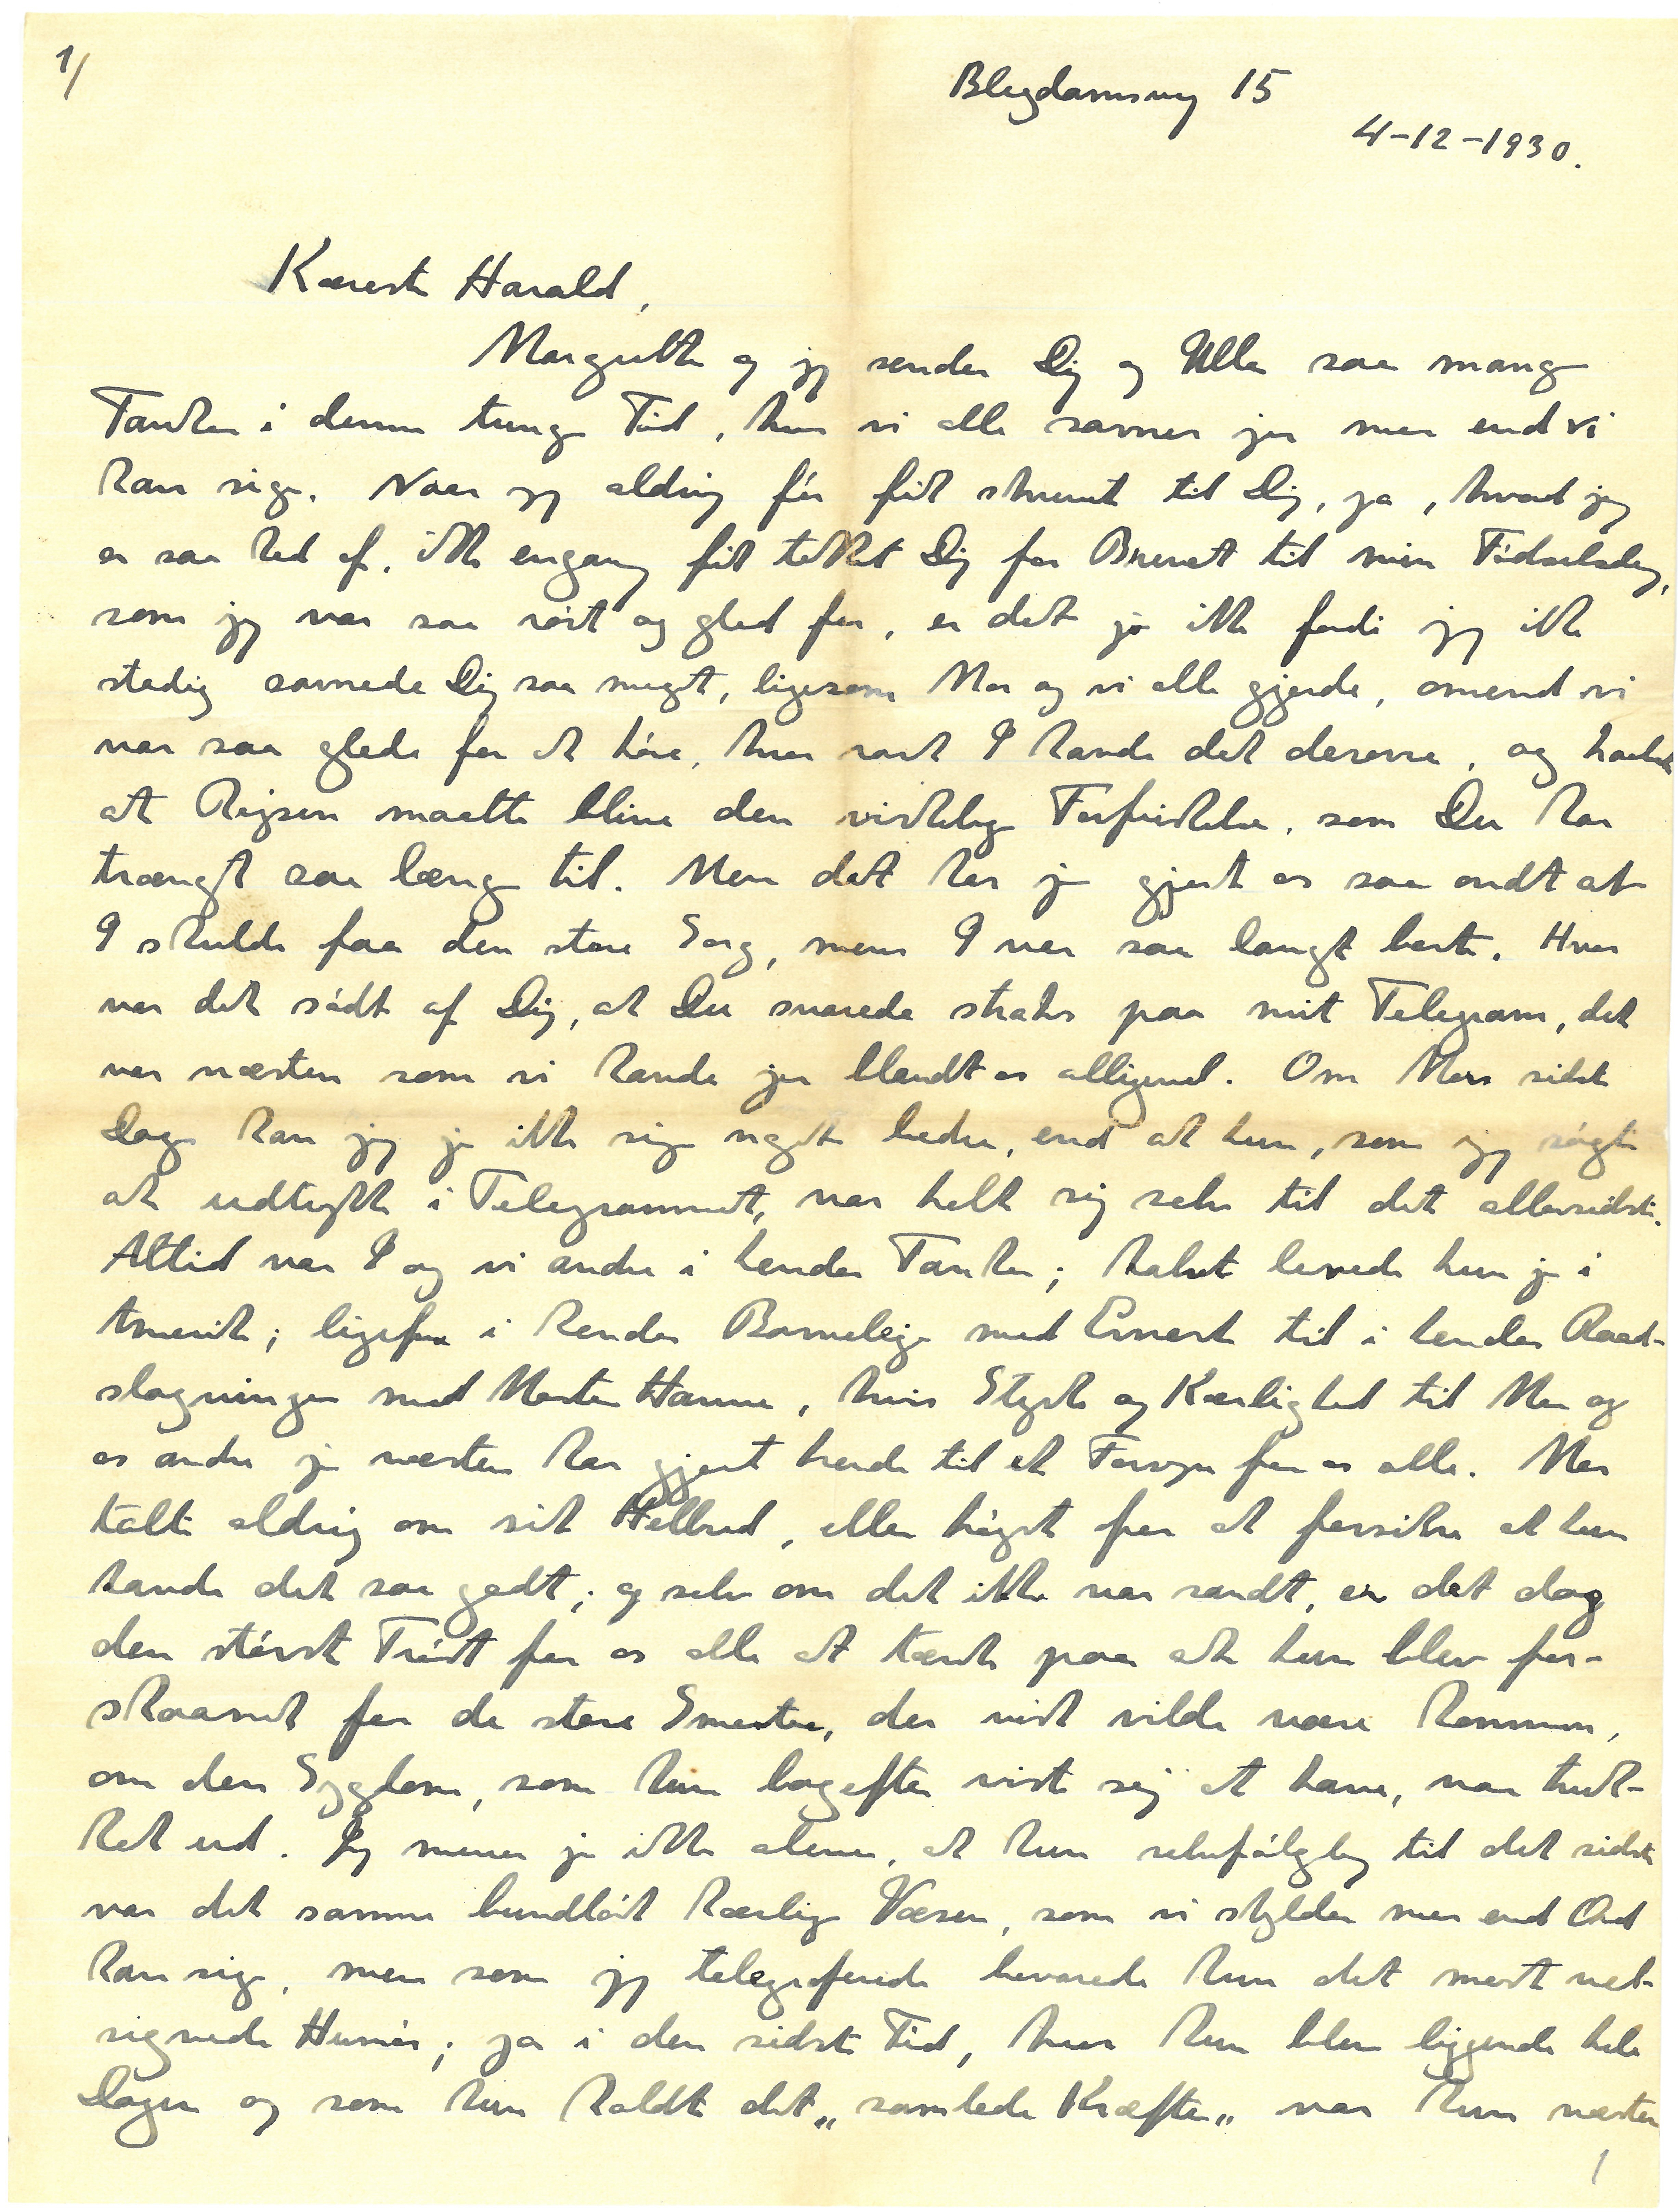 1/
Blegdamsvej 15
4-12-1930.
Kæreste Harald,
Margrethe og jeg sender Dig og Ulla saa mange
Tanker i denne tunge Tid, hvor vi alle savner jer mer end vi
kan sige. Naar jeg aldrig før fik skrevet til Dig, ja, hvad jeg
er saa ked af, ikke engang fik takket Dig for Brevet til min Fødselsdag,
som jeg var saa rørt og glad for, er det jo ikke fordi jeg ikke
stadig savnede Dig saa meget, ligesom Mor og vi alle gjorde, omend vi
var saa glade for at høre, hvor rart I havde det derovre, og haabede
at Rejsen maatte blive den virkelige Forfriskelse, som Du har
trængt saa længe til. Men det har jo gjort os saa ondt at
I skulde faa den store Sorg, mens I var saa langt borte. Hvor
var det sødt af Dig, at Du svarede straks paa mit Telegram, det
var næsten som vi havde jer blandt os alligevel. Om Mors sidste
Dage kan jeg jo ikke sige noget bedre, end at hun, som jeg søgte
at udtrykke i Telegrammet, var helt sig selv til det allersidste.
Altid var I og vi andre i hendes Tanker; halvt levede hun jo i
Amerika; ligefra i hendes Barneleje med Ernest til i hendes Raad-
slagninger med Moster Hanna, hvis Styrke og Kærlighed til Mor og
os andre jo næsten har gjort hende til et Forsyn for os alle. Mor
talte aldrig om sit Helbred, eller højst for at forsikre at hun
havde det saa godt; og selv om det ikke var sandt, er det dog
den største Trøst for os alle at tænke paa at hun blev for-
skaanet for de store Smerter, der vist vilde være kommen,
om den Sygdom, som hun bagefter viste sig at have, var truk-
ket ud. Jeg mener jo ikke alene, at hun selvfølgelig til det sidste
var det samme bundløst kærlige Væsen, som vi skylder mer end Ord
kan sige, men som jeg telegraferede bevarede hun det mest vel-
signede Humør; ja i den sidste Tid, hvor hun blev liggende hele
Dagen og som hun kaldte det „samlede Kræfter„ var hun næsten
1